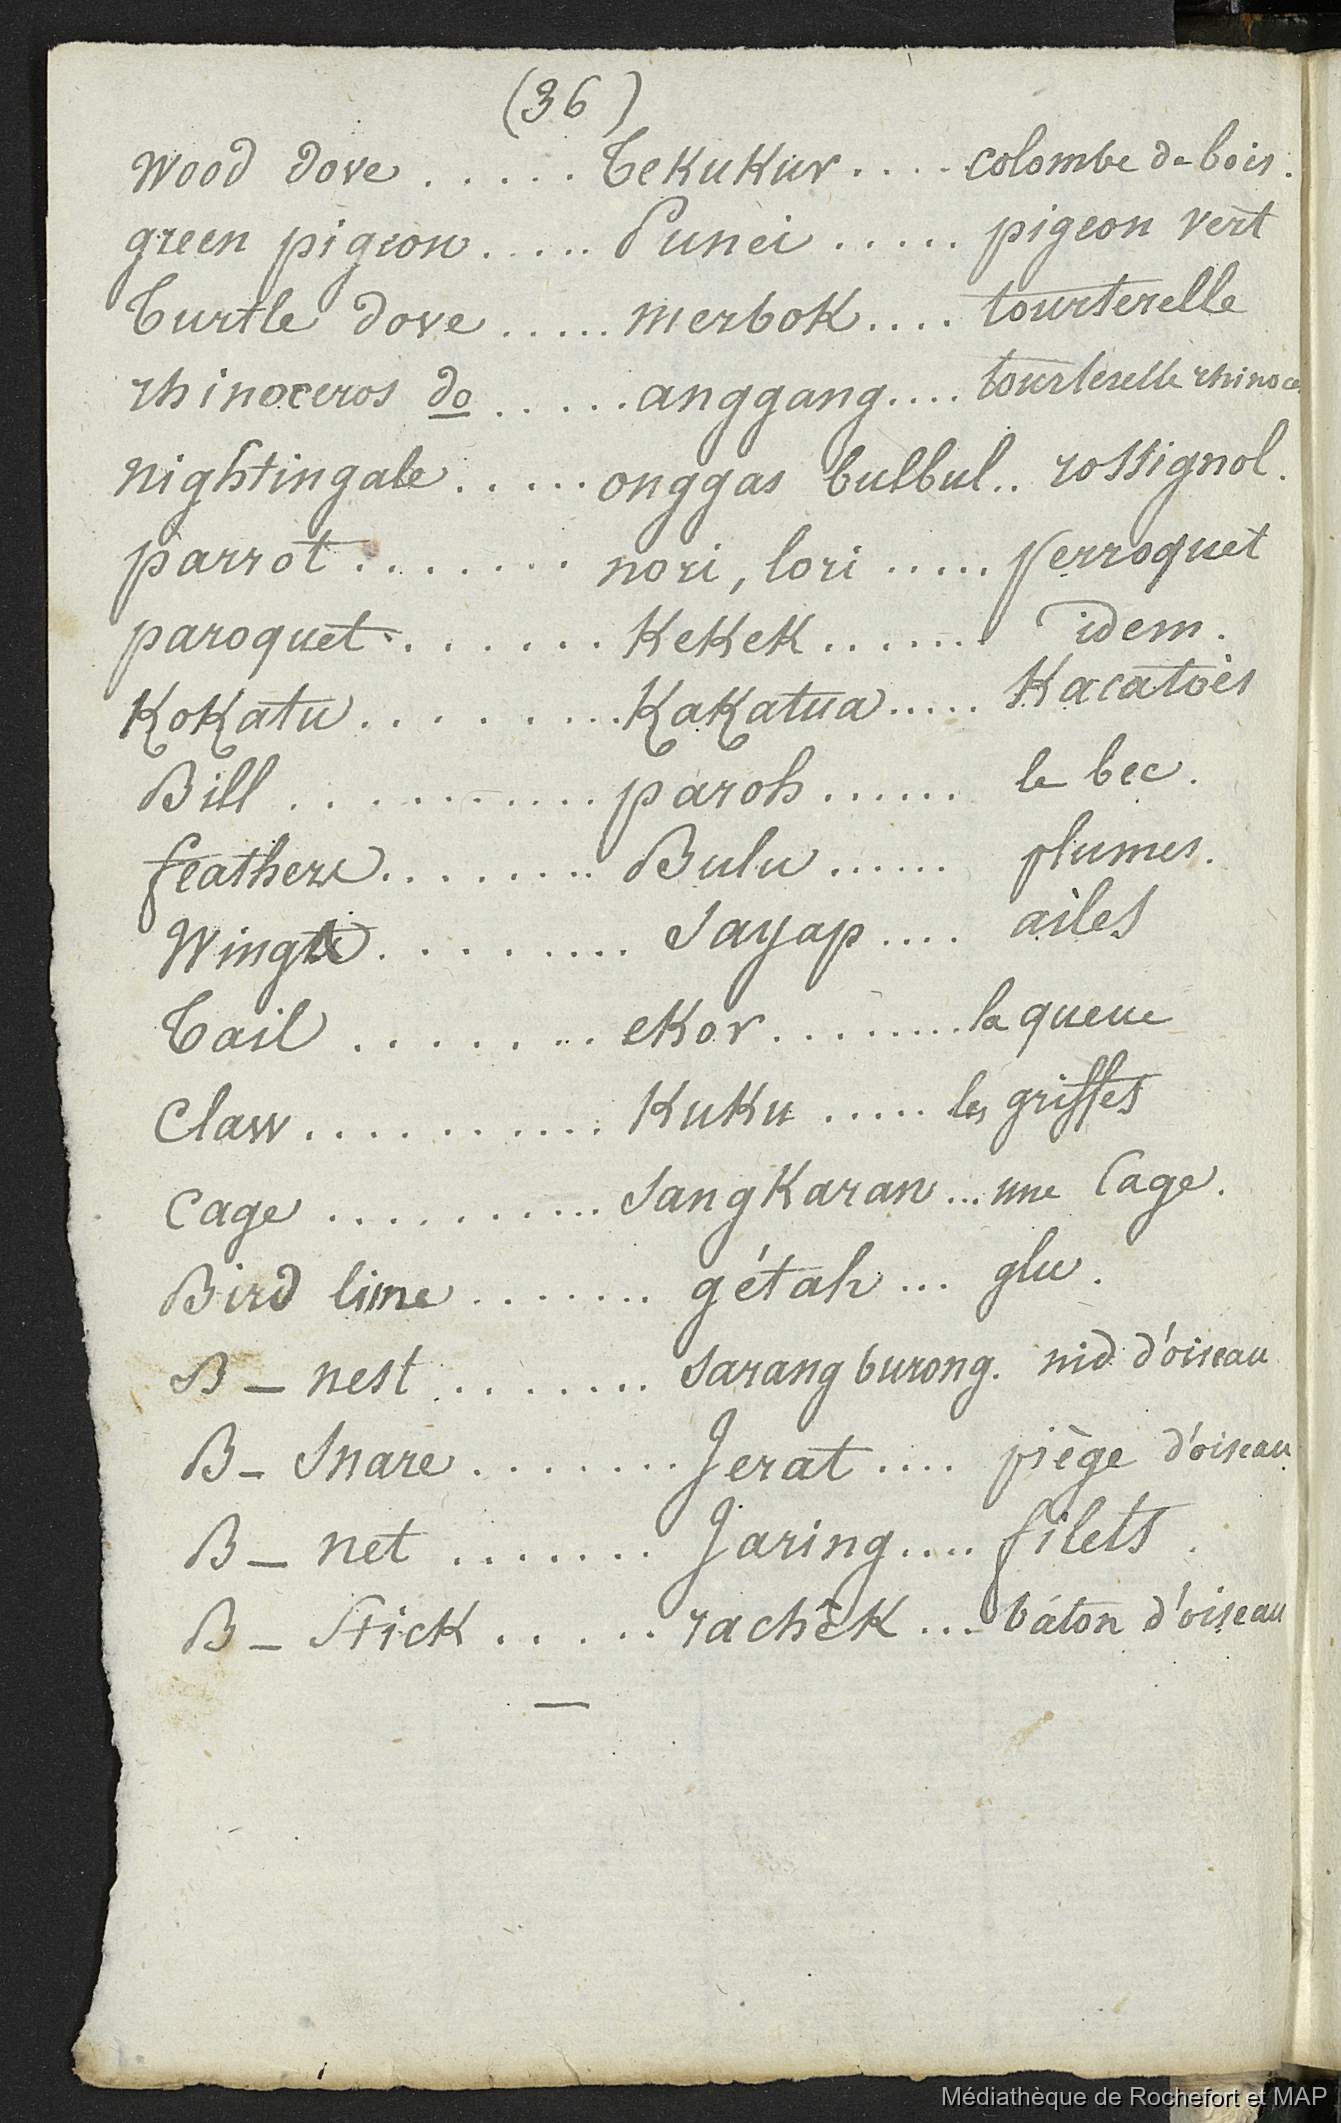 (36)
Wood dove ...... TeKuKur .... colombe de bois.
green pigeon ..... Punei ...... pigeon vert
Turtle dove ...... merboK .... tourterelle
rhinoceros do ...... anggang .... tourterelle rhinoce
nightingale ...... onggas bulbul .. rossignol.
parrot ....... nori, lori ..... perroquet
paroquet ....... KeKeK ....... idem.
KoKatu ......... KaKatua ..... Kacatoès
Bill ........... paroh ...... le bec.
feathers ........ Bulu ...... plumes.
Wings ......... Sayap .... ailes
Tail ........ eKor ........ la queue
Claw ........... KuKu ..... les griffes
Cage ........... SangKaran ... une Cage.
Bird lime ....... gétah ... glu.
B_ nest ........ Sarang burong. nid d'oiseau
B_ Snare ........ Jerat .... piège d'oiseau
B_ net ....... Jaring .... filets.
B_ SticK ...... rachêK ... bâton d'oiseau
—
Médiathèque de Rochefort et MAP